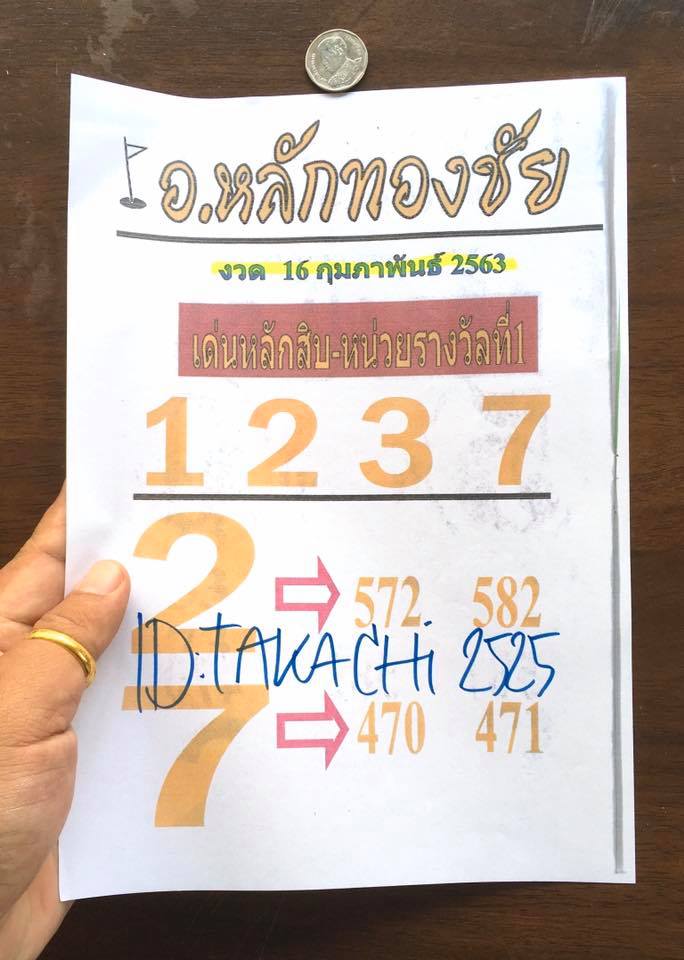 อ.หลักทองชัย
งวด 16 กุมภาพันธ์ 2563
เด่นหลักสิบ-หน่วยรางวัลที่1
1 2 3 7
2
572 582
ID:TAKACHi 2525
7
470 471